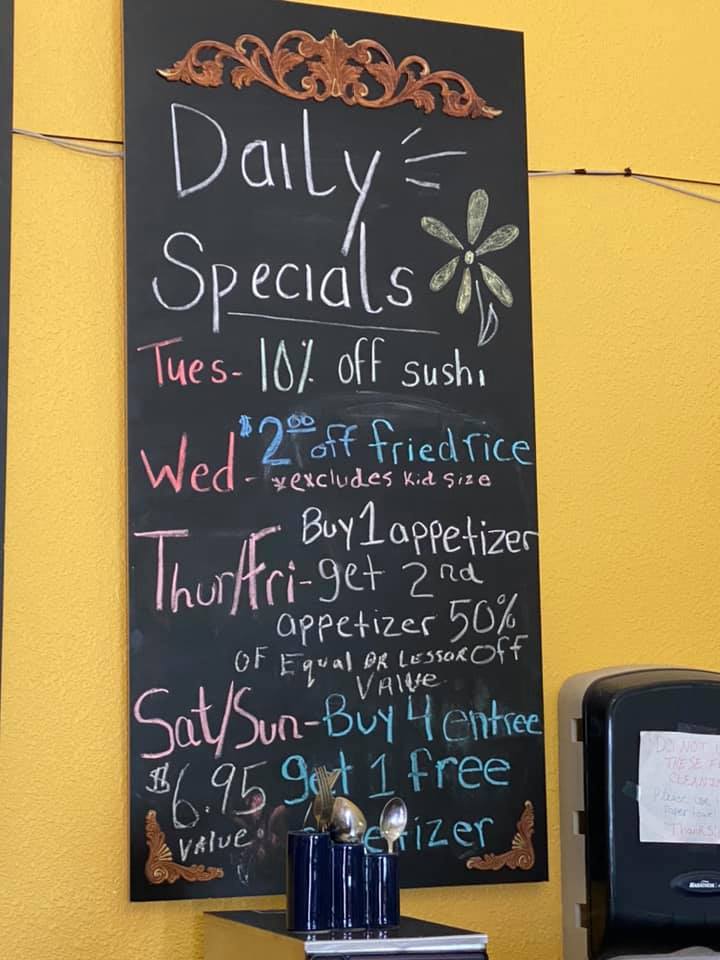 Daily
Specials
Tues- 10% off sushi
Wed- $2.00 off fried rice
*excludes kid size
Thur/Fri- Buy 1 appetizer
get 2nd
appetizer 50%
OF Equal OR LESSOR Off
VALUE
Sat/Sun- Buy 4 entree
$6.95 get 1 free
VALUE
DO NOT
THESE
CLEAN
Please use
Paper towel
Thanks